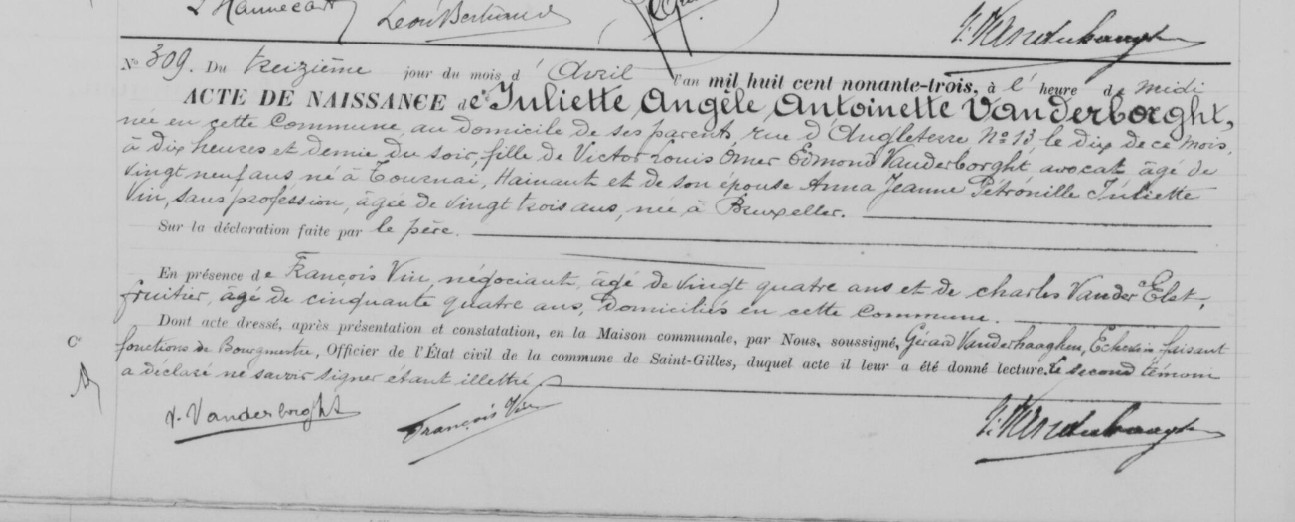 L Hannecart Léon Bertrand G. Vanderhaeghen
No 309. Du treizième jour du mois d' Avril l'an mil huit cent nonante-trois, à l' heure de midi
ACTE DE NAISSANCE de Juliette Angèle Antoinette Vanderborght,
née en cette Commune, au domicile de ses parents, rue d'Angleterre No 13, le dix de ce mois,
à dix heures et demie du soir, fille de Victor Louis Omer Edmond Vanderborght, avocat, âgé de
vingt neuf ans, né à Tournai, Hainaut et de son épouse Anna Jeanne Pétronille Juliette
Vin, sans profession, âgée de vingt trois ans, née à Bruxelles.
Sur la déclaration faite par le père.
En présence de François Vin, négociant, âgé de vingt quatre ans et de charles Vander Elst,
fruitier, âgé de cinquante quatre ans, Domiciliés en cette Commune.
Dont acte dressé, après présentation et constatation, en la Maison communale, par Nous, soussigné, Gérard Vanderhaeghen, Echevin faisant
fonctions de Bourgmestre, Officier de l'État civil de la commune de Saint-Gilles, duquel acte il leur a été donné lecture. Le second témoin
a déclaré ne savoir signer étant illettré
V. Vanderborght François Vin G. Vanderhaeghen